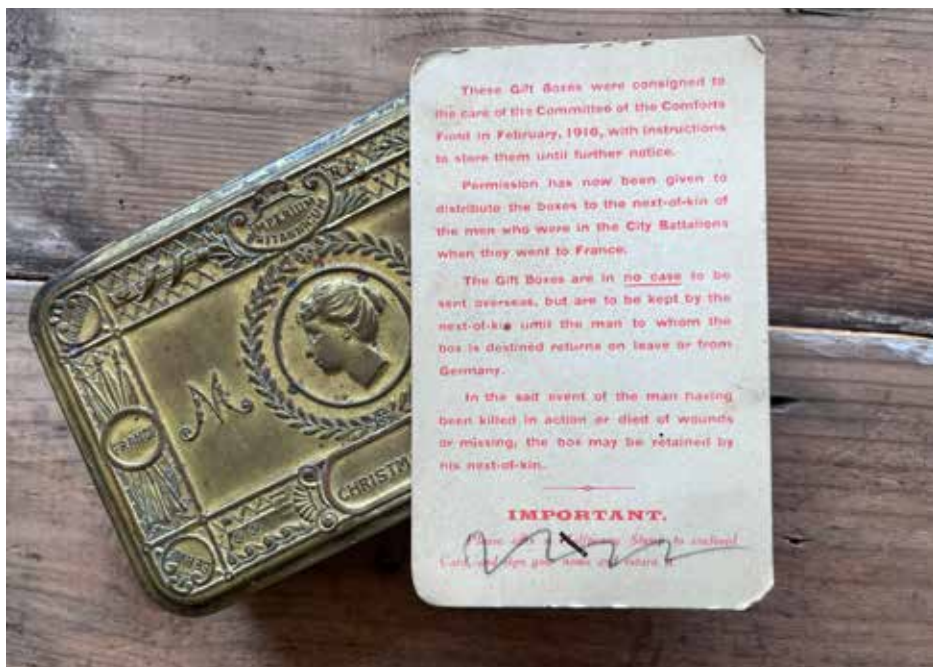 IMPERIUM
BRITANNICUM
FRANCE
M
CHRISTM
These Gift Boxes were consigned to
the care of the Committee of the Comforts
Fund in February, 1916, with instructions
to store them until further notice.
Permission has now been given to
distribute the boxes to the next-of-kin of
the men who were in the City Battalions
when they went to France.
The Gift Boxes are in no case to be
sent overseas, but are to be kept by the
next-of-kin until the man to whom the
box is destined returns on leave or from
Germany.
In the sad event of the man having
been killed in action or died of wounds
or missing, the box may be retained by
his next-of-kin.
IMPORTANT.
Please Halfpenny Stamp to enclosed
Card, and sign your name and return it.